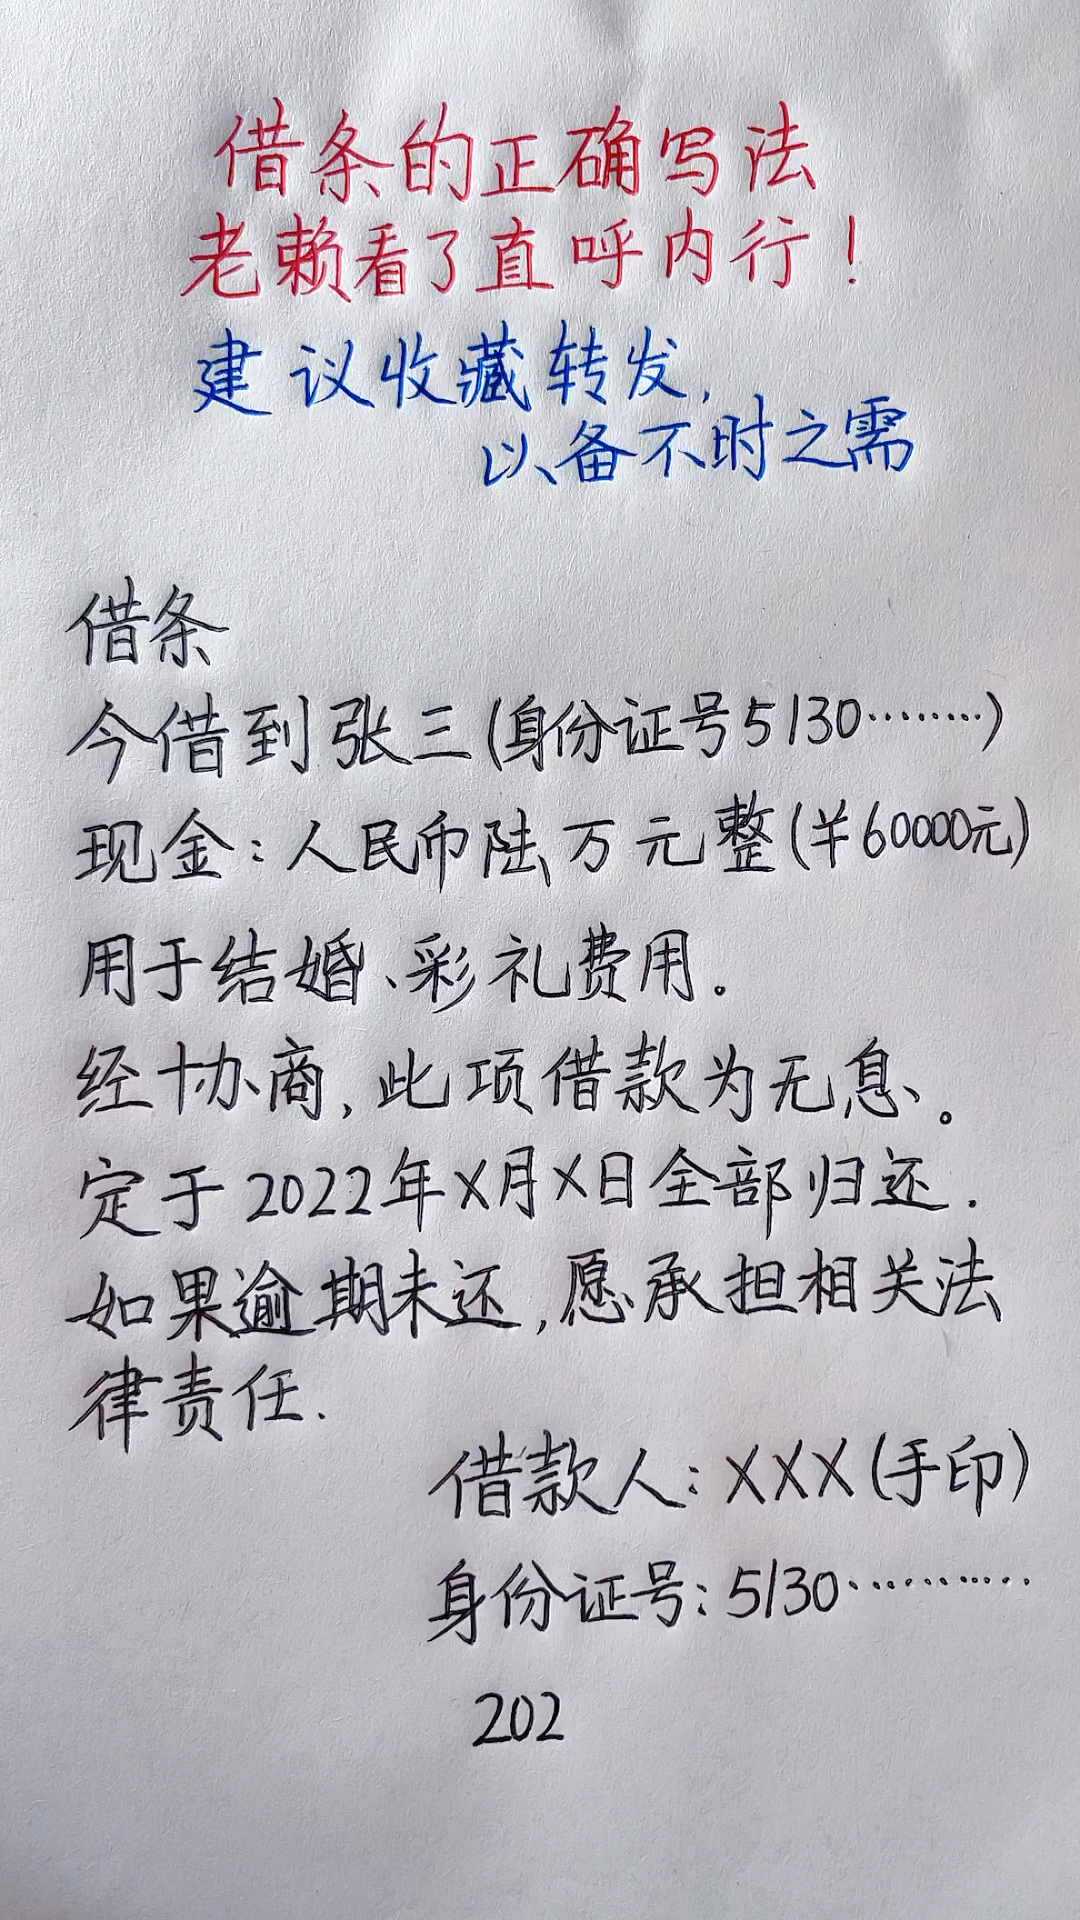 借条的正确写法
老赖看了直呼内行！
建议收藏转发,
以备不时之需
借条
今借到张三(身份证号5130········)
现金:人民币陆万元整(¥60000元)
用于结婚、彩礼费用。
经协商,此项借款为无息。
定于2022年X月X日全部归还.
如果逾期未还,愿承担相关法
律责任.
借款人:XXX(手印)
身份证号:5130···········
202